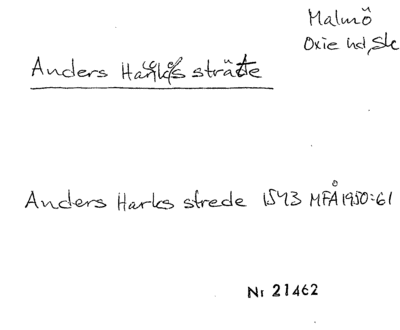 Malmö
Oxie hd, Sk
Anders Harks stræte
Anders Harks strede 1543 MFÅ 1950:61
Nr 21462